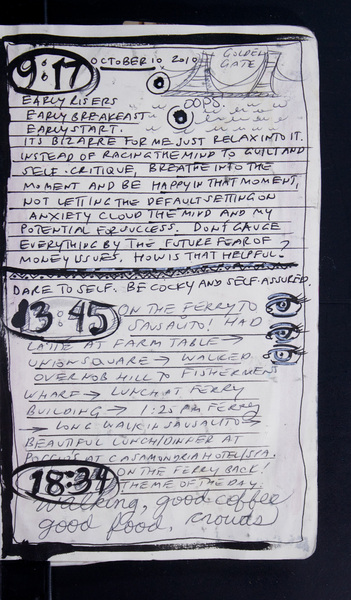 9:17 OCTOBER 10, 2010
GOLDEN GATE
EARLY RISERS
OOPS.
EARLY BREAKFAST
EARLY START.
IT'S BIZARRE FOR ME JUST RELAX INTO IT.
INSTEAD OF RACING THE MIND TO GUILT AND
SELF-CRITIQUE, BREATHE INTO THE
MOMENT AND BE HAPPY IN THAT MOMENT,
NOT LETTING THE DEFAULT SETTING ON
ANXIETY CLOUD THE MIND AND MY
POTENTIAL FOR SUCCESS. DON'T GAUGE
EVERYTHING BY THE FUTURE FEAR OF
MONEY ISSUES. HOW IS THAT HELPFUL?
DARE TO SELF. BE COCKY AND SELF-ASSURED.
13:45 ON THE FERRY TO
SAUSALITO! HAD
LATTE AT FARM TABLE →
UNION SQUARE → WALKED
OVER NOB HILL TO FISHERMENS
WHARF → LUNCH AT FERRY
BUILDING → 1:25 PM FERRY
→ LONG WALK IN SAUSALITO →
BEAUTIFUL LUNCH/DINNER AT
AT CASA MADRONA HOTEL/SPA.
18:34 ON THE FERRY BACK!
THEME OF THE DAY:
walking, good coffee
good food, crowds